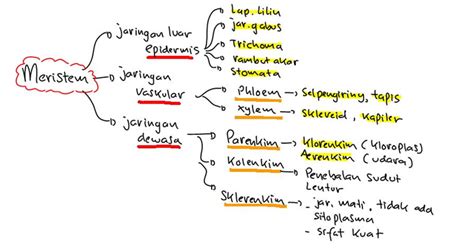 Meristem
jaringan luar
epidermis
Lap. lilin
jar. gabus
Trichoma
rambut akar
Stomata
jaringan
vaskular
Phloem → Selpengiring, tapis
Xylem → Skléreid, Kapiler
jaringan
dewasa
Parenkim → Klorenkim (kloroplas)
Aerenkim (udara)
Kolenkim → Penebalan sudut
Lentur
Sklerenkim → - jar. mati, tidak ada
sitoplasma
- sifat kuat